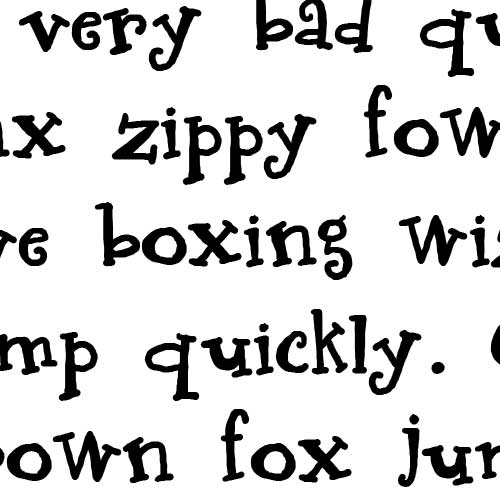 very bad qu
x zippy fow
ve boxing wi
mp quickly.
own fox jum